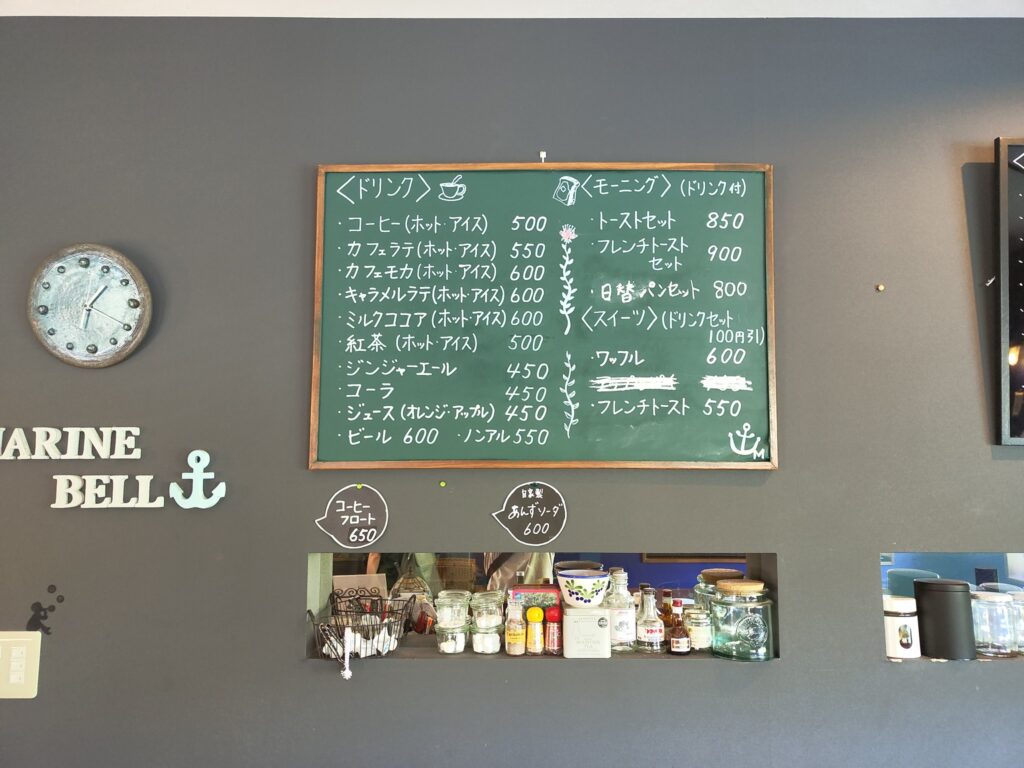 〈ドリンク〉
・コーヒー(ホット・アイス) 500
・カフェラテ(ホット・アイス) 550
・カフェモカ(ホット・アイス) 600
・キャラメルラテ(ホット・アイス) 600
・ミルクココア(ホット・アイス) 600
・紅茶(ホット・アイス) 500
・ジンジャーエール 450
・コーラ 450
・ジュース(オレンジ・アップル) 450
・ビール 600 ・ノンアル 550
〈モーニング〉(ドリンク付)
・トーストセット 850
・フレンチトースト
セット 900
・日替パンセット 800
〈スイーツ〉(ドリンクセット
100円引)
・ワッフル 600
・フレンチトースト 550
M
MARINE
BELL
コーヒー
フロート
650
自家製
あんずソーダ
600